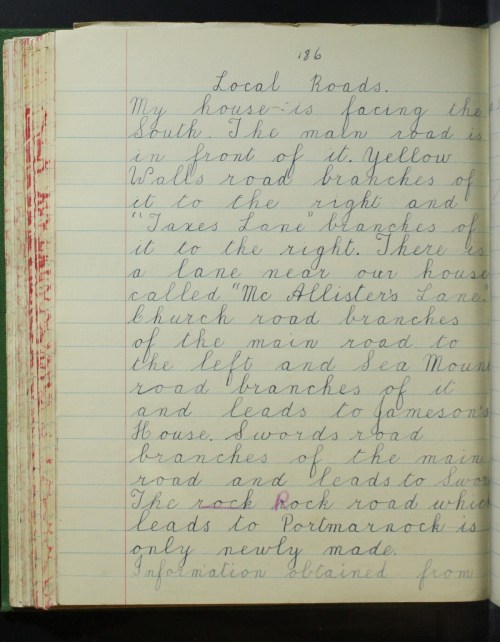 186
Local Roads.
My house is facing the
South. The main road is
in front of it. Yellow
Walls road branches of
it to the right and
"Taxes Lane" branches of
it to the right. There is
a lane near our house
called "Mc Allister's Lane".
Church road branches
of the main road to
the left and Sea Mount
road branches of it
and leads to Jameson's
House. Swords road
branches of the main
road and leads to Swor
The rock Rock road which
leads to Portmarnock is
only newly made.
Information obtained from